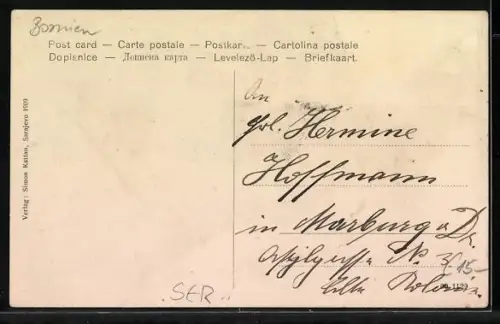 Bosnien
Post card — Carte postale — Postkar... — Cartolina postale
Dopisnice — Дописна карта — Levelező-Lap — Briefkaart.
Verlag: Simon Kattan, Sarajevo 1909
An
Hermine
Hoffmann
in Marburg a D.
No
15-
SER.